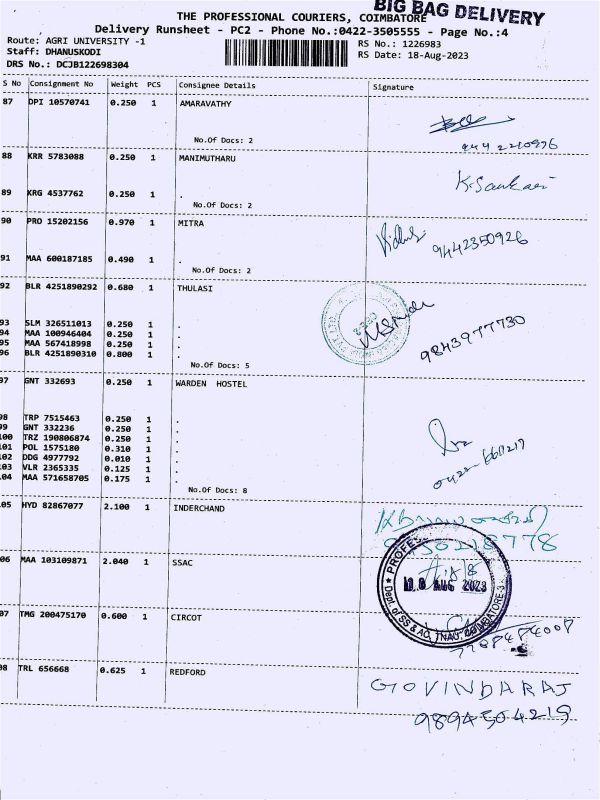 BIG BAG DELIVERY
THE PROFESSIONAL COURIERS, COIMBATORE
Delivery Runsheet - PC2 - Phone No.:0422-3505555 - Page No.:4
Route: AGRI UNIVERSITY -1
RS No.: 1226983
Staff: DHANUSKODI
RS Date: 18-Aug-2023
DRS No.: DCJB122698304
S No Consignment No Weight PCS Consignee Details Signature
87 DPI 10570741 0.250 1 AMARAVATHY
No.Of Docs: 2
88 KRR 5783088 0.250 1 MANIMUTHARU
K.Sankari
89 KRG 4537762 0.250 1 .
No.Of Docs: 2
90 PRO 15202156 0.970 1 MITRA
9442350926
91 MAA 600187185 0.490 1 .
No.Of Docs: 2
92 BLR 4251890292 0.680 1 THULASI
93 SLM 326511013 0.250 1 .
94 MAA 100946404 0.250 1 .
95 MAA 567418998 0.250 1 .
96 BLR 4251890310 0.800 1 .
9843977730
No.Of Docs: 5
97 GNT 332693 0.250 1 WARDEN HOSTEL
98 TRP 7515463 0.250 1 .
99 GNT 332236 0.250 1 .
100 TRZ 190806874 0.250 1 .
101 POL 1575180 0.310 1 .
102 DDG 4977792 0.010 1 .
103 VLR 2365335 0.125 1 .
104 MAA 571658705 0.175 1 .
No.Of Docs: 8
05 HYD 82867077 2.100 1 INDERCHAND
06 MAA 103109871 2.040 1 SSAC
18 AUG 2023
Dep. of SS & AC, TNAU, COIMBATORE-3
07 TMG 200475170 0.600 1 CIRCOT
08 TRL 656668 0.625 1 REDFORD
GOVINDARAJ
9894504219